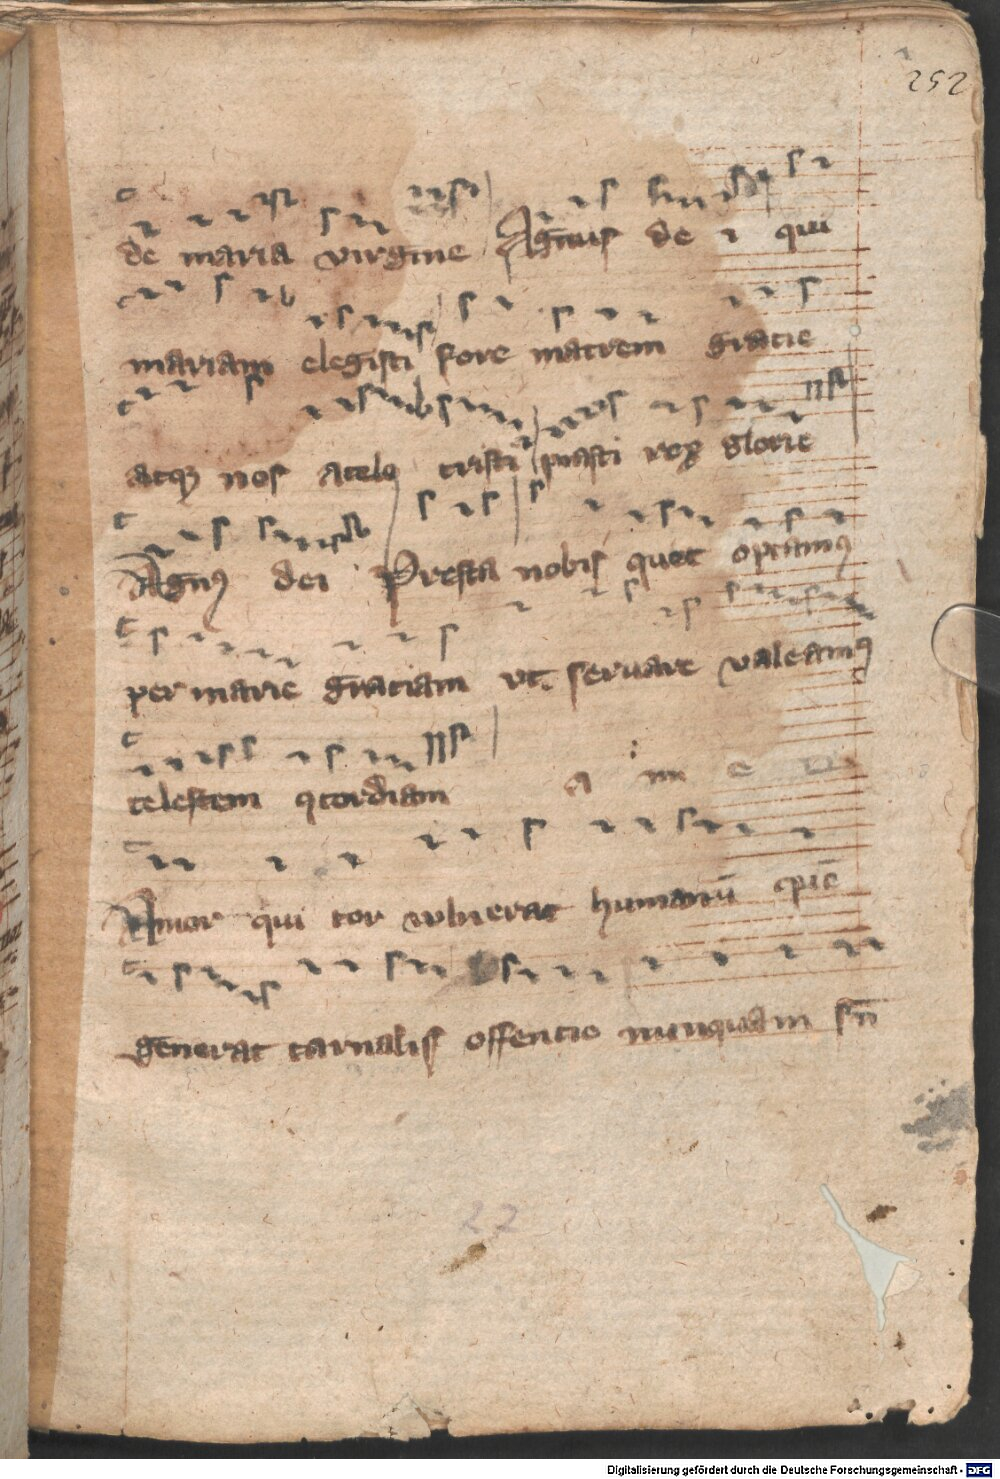 252
de maria virgine Agnus de i qui
mariam elegisti fore matrem gracie
atqꝫ nos a celo glorie
Agnꝰ dei Presta nobis optamꝰ
per marie graciam vt seruare valeamꝰ
celestem ꝯcordiam
Amor qui cor vulnerat humanū
generat carnalis offencio nunquam
22
Digitalisierung gefördert durch die Deutsche Forschungsgemeinschaft - DFG